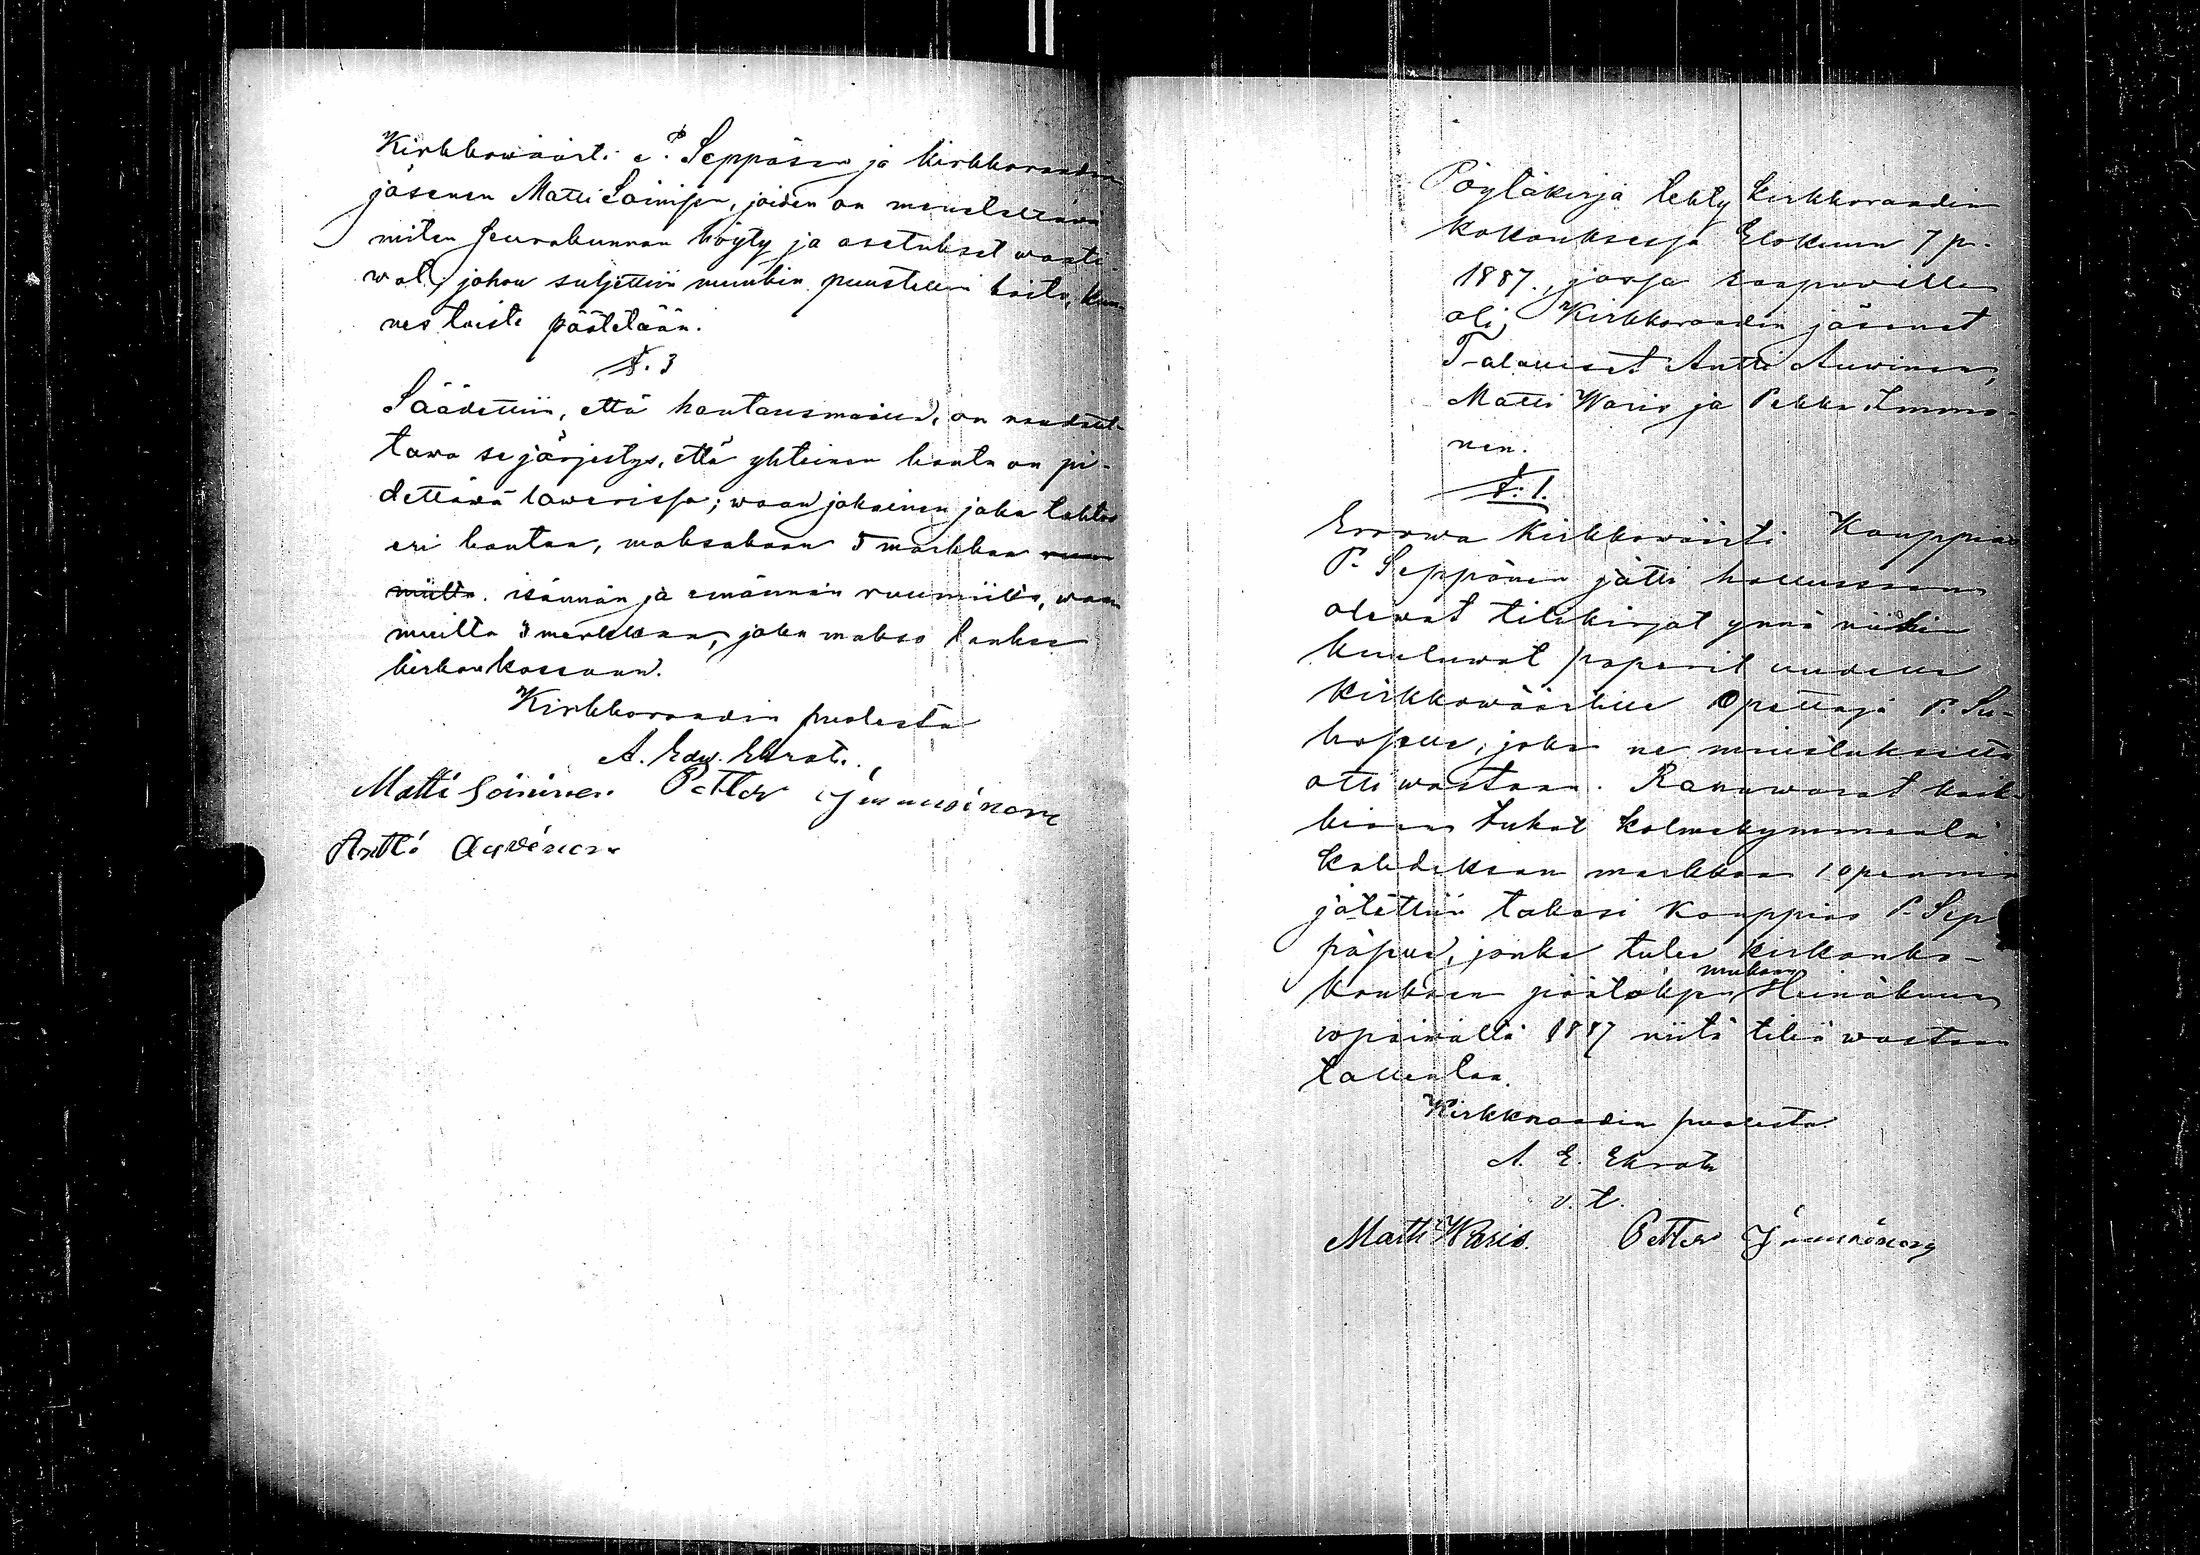 Kirkkowäärti P. Seppäsen ja kirkkoraadin
jäsenen Matti Soinisen, joiden on meneteltävä
miten seurakunnan höyty ja asetukset waati-
wat, johon suljettiin muunkin puustellin hoito, kun
nes toisti päätetään.
§. 3
Säädettiin, että hautausmailla, on noudatet-
tawa se järjestys, että yhteinen hauta on pi-
dettäwä tawerissa; waan jokainen joka tahtoo
eri hautaa, maksakoon 5 markkaa ruu
miilta. isännän ja emännän ruumiilta, waan
muilta 3 markkaa, joka makso lankee
kirkon kassaan.
Kirkkoraadin puolesta
A. Edw. Ehrström
Matti Soininen Petter Immoinen
Antti Auvinen
Pöytäkirja tehty Kirkkoraadin
kokouksessa Elokuun 7 p.
1887., jossa saapuvilla
oli Kirkkoraadin jäsenet
Talolliset Antti Auwinen,
Matti Waris ja Pekka Immo-
nen.
§. 1.
Eroowa Kirkkowäärti Kauppias
P. Seppänen jätti hallussaan
olewat tilikirjat ynnä niihin
kuuluwat paperit uudelle
Kirkkowäärtille Opettaja P. Su-
hoselle, joka ne muistuksetta
otti wastaan. Rahawarat kaik-
kiaan tuhat kolmekymmentä
kahdeksan markkaa 10 penniä
jätettiin takasi Kauppias P. Sep
päselle, jonka tulee kirkonko-
kouksen päätöksen mukaan Heinäkuun
10 päiwältä 1887 niitä tiliä wastaan
tallentaa.
Kirkkoraadin puolesta
A. E. Ehrström
v. t.
Matti Waris. Petter Immoinen